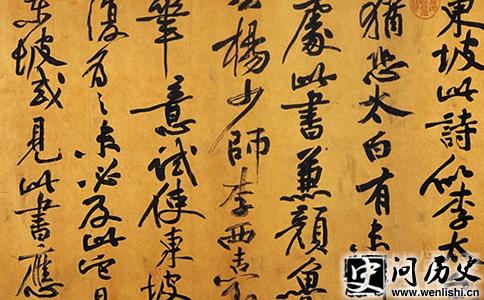 東坡此詩似李太
猶恐太白有未
處此書兼顏魯
公楊少師李西臺
筆意試使東坡
復為之未必及此它日
東坡或見此書應
史
问历史
www.wenlishi.cn